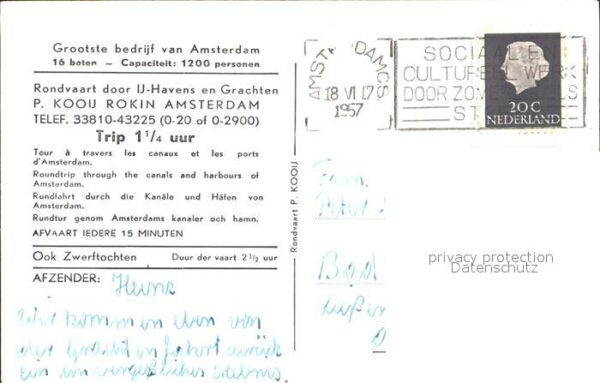 Grootste bedrijf van Amsterdam
16 boten – Capaciteit: 1200 personen
Rondvaart door IJ-Havens en Grachten
P. KOOIJ ROKIN AMSTERDAM
TELEF. 33810-43225 (0-20 of 0-2900)
Trip 1¼ uur
Tour à travers les canaux et les ports
d'Amsterdam.
Roundtrip through the canals and harbours of
Amsterdam.
Rundfahrt durch die Kanäle und Häfen von
Amsterdam.
Rundtur genom Amsterdams kanaler och hamn.
AFVAART IEDERE 15 MINUTEN
Ook Zwerftochten Duur der vaart 2½ uur
AFZENDER: Heinz
Wir kommen eben von
der Grachtenfahrt zurück
ein unvergeßliches Erlebnis.
Rondvaart P. KOOIJ
AMST DAMCS
18 VI 17
1957
SOCIAAL EN
CULTUREEL WERK
DOOR ZOME LS
20 C
NEDERLAND
Fam.
Bad
privacy protection
Datenschutz